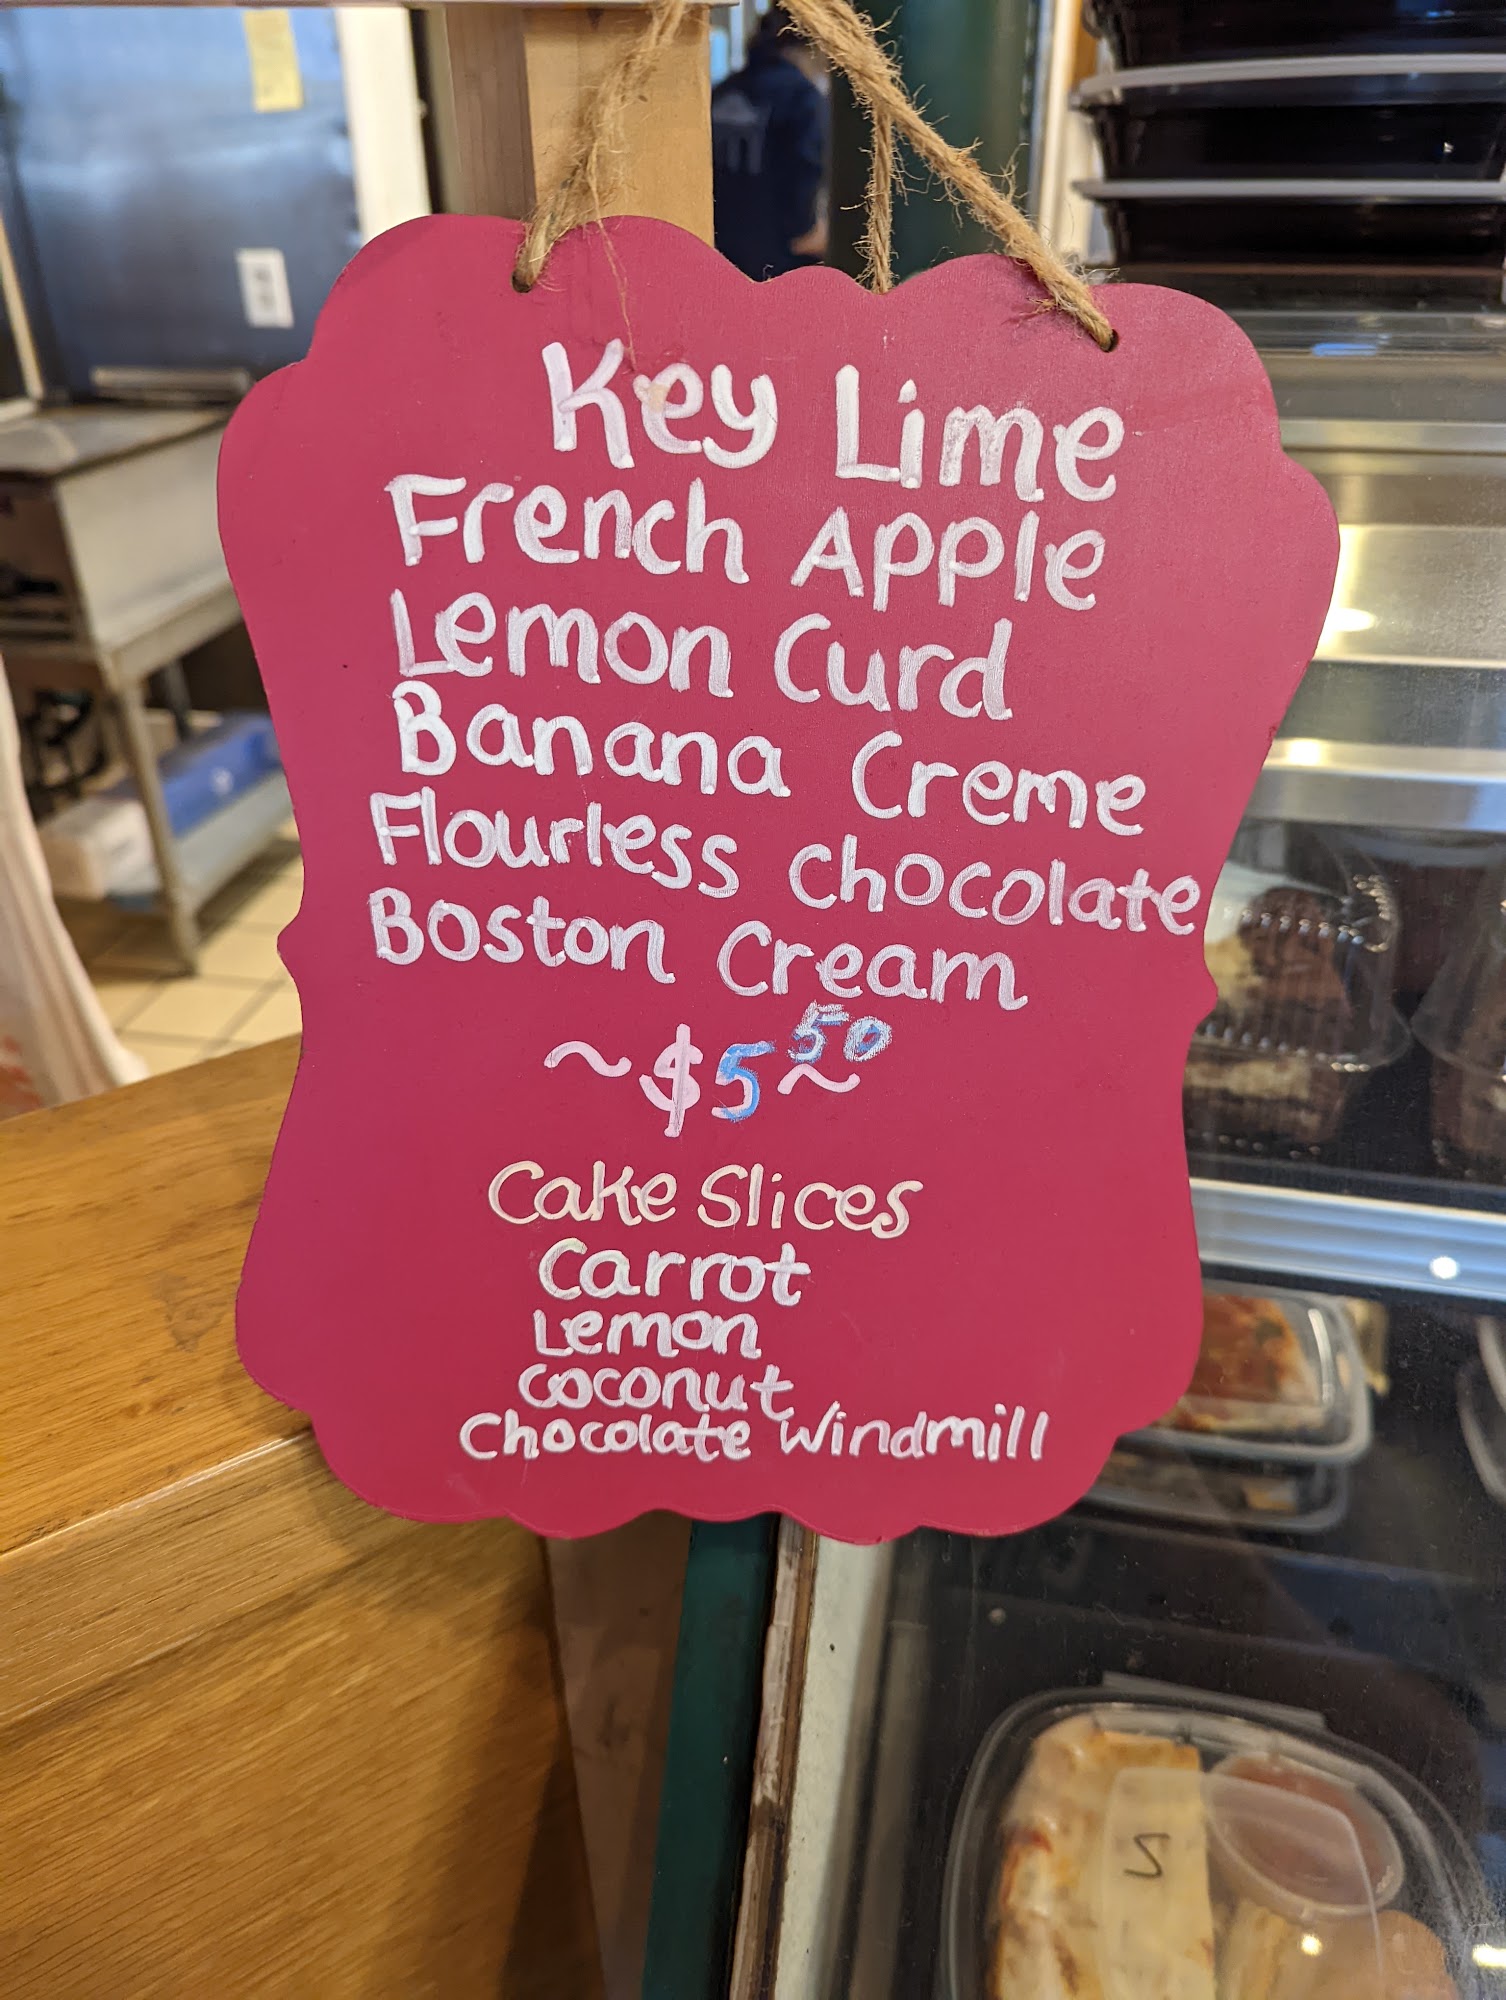 Key Lime
French Apple
Lemon Curd
Banana Creme
Flourless Chocolate
Boston Cream
~$5 50~
Cake Slices
Carrot
Lemon
Coconut
Chocolate Windmill